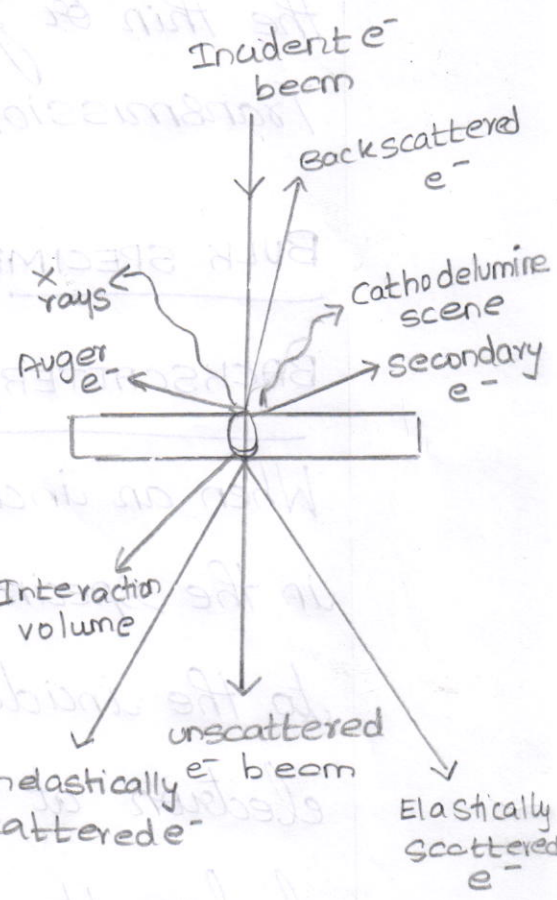 Incident e⁻
beam
Backscattered
e⁻
x
rays
Cathodelumine
scene
Auger
e⁻
secondary
e⁻
Interaction
volume
unscattered
e⁻ beam
nelastically
attered e⁻
Elastically
scattered
e⁻